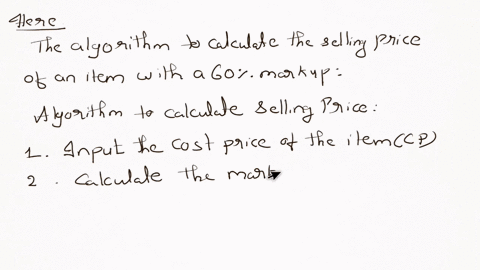 Here
The algorithm to calculate the selling price
of an item with a 60%. markup:
Algorithm to calculate Selling Price:
1. Input the cost price of the item (CP)
2. Calculate the mark